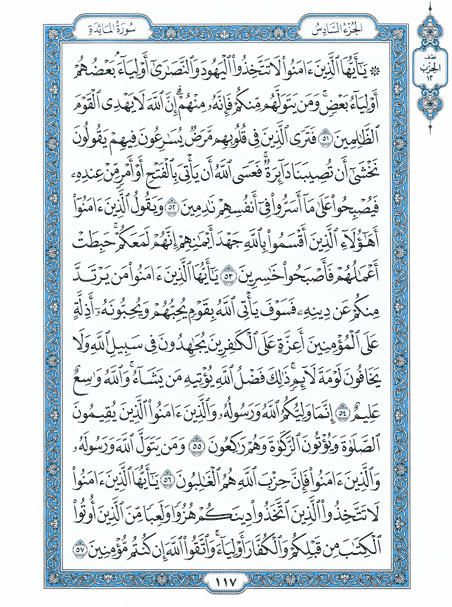 سورة المائدة
الجزء السادس
نصف
الحزب
١٢
۞ يَٰٓأَيُّهَا ٱلَّذِينَ ءَامَنُوا۟ لَا تَتَّخِذُوا۟ ٱلْيَهُودَ وَٱلنَّصَٰرَىٰٓ أَوْلِيَآءَ ۘ بَعْضُهُمْ
أَوْلِيَآءُ بَعْضٍ ۚ وَمَن يَتَوَلَّهُم مِّنكُمْ فَإِنَّهُۥ مِنْهُمْ ۗ إِنَّ ٱللَّهَ لَا يَهْدِى ٱلْقَوْمَ
ٱلظَّٰلِمِينَ ٥١ فَتَرَى ٱلَّذِينَ فِى قُلُوبِهِم مَّرَضٌ يُسَٰرِعُونَ فِيهِمْ يَقُولُونَ
نَخْشَىٰٓ أَن تُصِيبَنَا دَآئِرَةٌ ۚ فَعَسَى ٱللَّهُ أَن يَأْتِىَ بِٱلْفَتْحِ أَوْ أَمْرٍ مِّنْ عِندِهِۦ
فَيُصْبِحُوا۟ عَلَىٰ مَآ أَسَرُّوا۟ فِىٓ أَنفُسِهِمْ نَٰدِمِينَ ٥٢ وَيَقُولُ ٱلَّذِينَ ءَامَنُوٓا۟
أَهَٰٓؤُلَآءِ ٱلَّذِينَ أَقْسَمُوا۟ بِٱللَّهِ جَهْدَ أَيْمَٰنِهِمْ ۙ إِنَّهُمْ لَمَعَكُمْ ۚ حَبِطَتْ
أَعْمَٰلُهُمْ فَأَصْبَحُوا۟ خَٰسِرِينَ ٥٣ يَٰٓأَيُّهَا ٱلَّذِينَ ءَامَنُوا۟ مَن يَرْتَدَّ
مِنكُمْ عَن دِينِهِۦ فَسَوْفَ يَأْتِى ٱللَّهُ بِقَوْمٍ يُحِبُّهُمْ وَيُحِبُّونَهُۥٓ أَذِلَّةٍ
عَلَى ٱلْمُؤْمِنِينَ أَعِزَّةٍ عَلَى ٱلْكَٰفِرِينَ يُجَٰهِدُونَ فِى سَبِيلِ ٱللَّهِ وَلَا
يَخَافُونَ لَوْمَةَ لَآئِمٍ ۚ ذَٰلِكَ فَضْلُ ٱللَّهِ يُؤْتِيهِ مَن يَشَآءُ ۚ وَٱللَّهُ وَٰسِعٌ
عَلِيمٌ ٥٤ إِنَّمَا وَلِيُّكُمُ ٱللَّهُ وَرَسُولُهُۥ وَٱلَّذِينَ ءَامَنُوا۟ ٱلَّذِينَ يُقِيمُونَ
ٱلصَّلَوٰةَ وَيُؤْتُونَ ٱلزَّكَوٰةَ وَهُمْ رَٰكِعُونَ ٥٥ وَمَن يَتَوَلَّ ٱللَّهَ وَرَسُولَهُۥ
وَٱلَّذِينَ ءَامَنُوا۟ فَإِنَّ حِزْبَ ٱللَّهِ هُمُ ٱلْغَٰلِبُونَ ٥٦ يَٰٓأَيُّهَا ٱلَّذِينَ ءَامَنُوا۟
لَا تَتَّخِذُوا۟ ٱلَّذِينَ ٱتَّخَذُوا۟ دِينَكُمْ هُزُوًا وَلَعِبًا مِّنَ ٱلَّذِينَ أُوتُوا۟
ٱلْكِتَٰبَ مِن قَبْلِكُمْ وَٱلْكُفَّارَ أَوْلِيَآءَ ۚ وَٱتَّقُوا۟ ٱللَّهَ إِن كُنتُم مُّؤْمِنِينَ ٥٧
١١٧